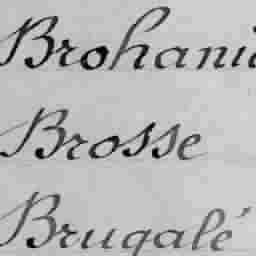 Brohani
Brosse
Brugalé